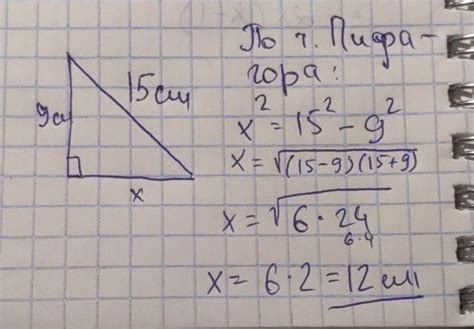 По т. Пифа-
гора:
15см
9с
x
x² = 15² - 9²
x = √(15-9)(15+9)
x = √6 · 24
6·4
x = 6 · 2 = 12 см